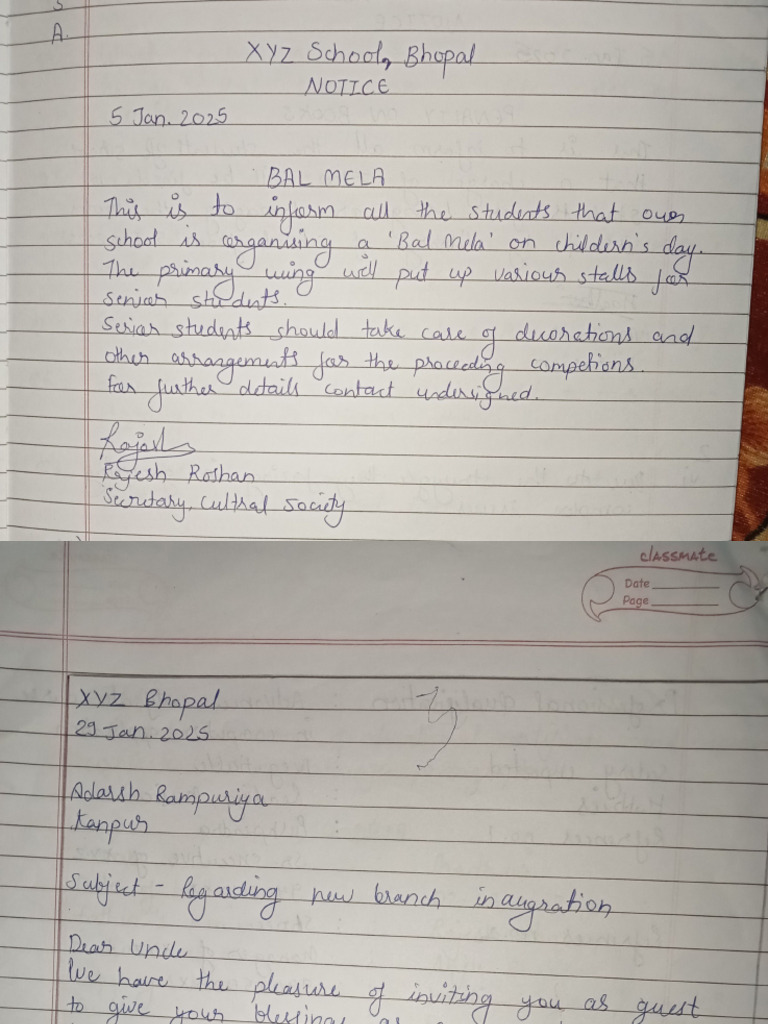 A.
XYZ School, Bhopal
NOTICE
5 Jan. 2025
BAL MELA
This is to inform all the students that our
school is organising a 'Bal Mela' on childern's day.
The primary wing will put up various stalls for
senior students.
Senior students should take care of decorations and
other arrangements for the proceeding competions.
For further details contact undersigned.
Rajesh
Rajesh Roshan
Secretary, Cultral Society
classmate
Date
Page
XYZ Bhopal
29 Jan. 2025
Adarsh Rampuriya
Kanpur
Subject - Regarding new branch inaugration
Dear Uncle
We have the pleasure of inviting you as guest
to give your blessings as